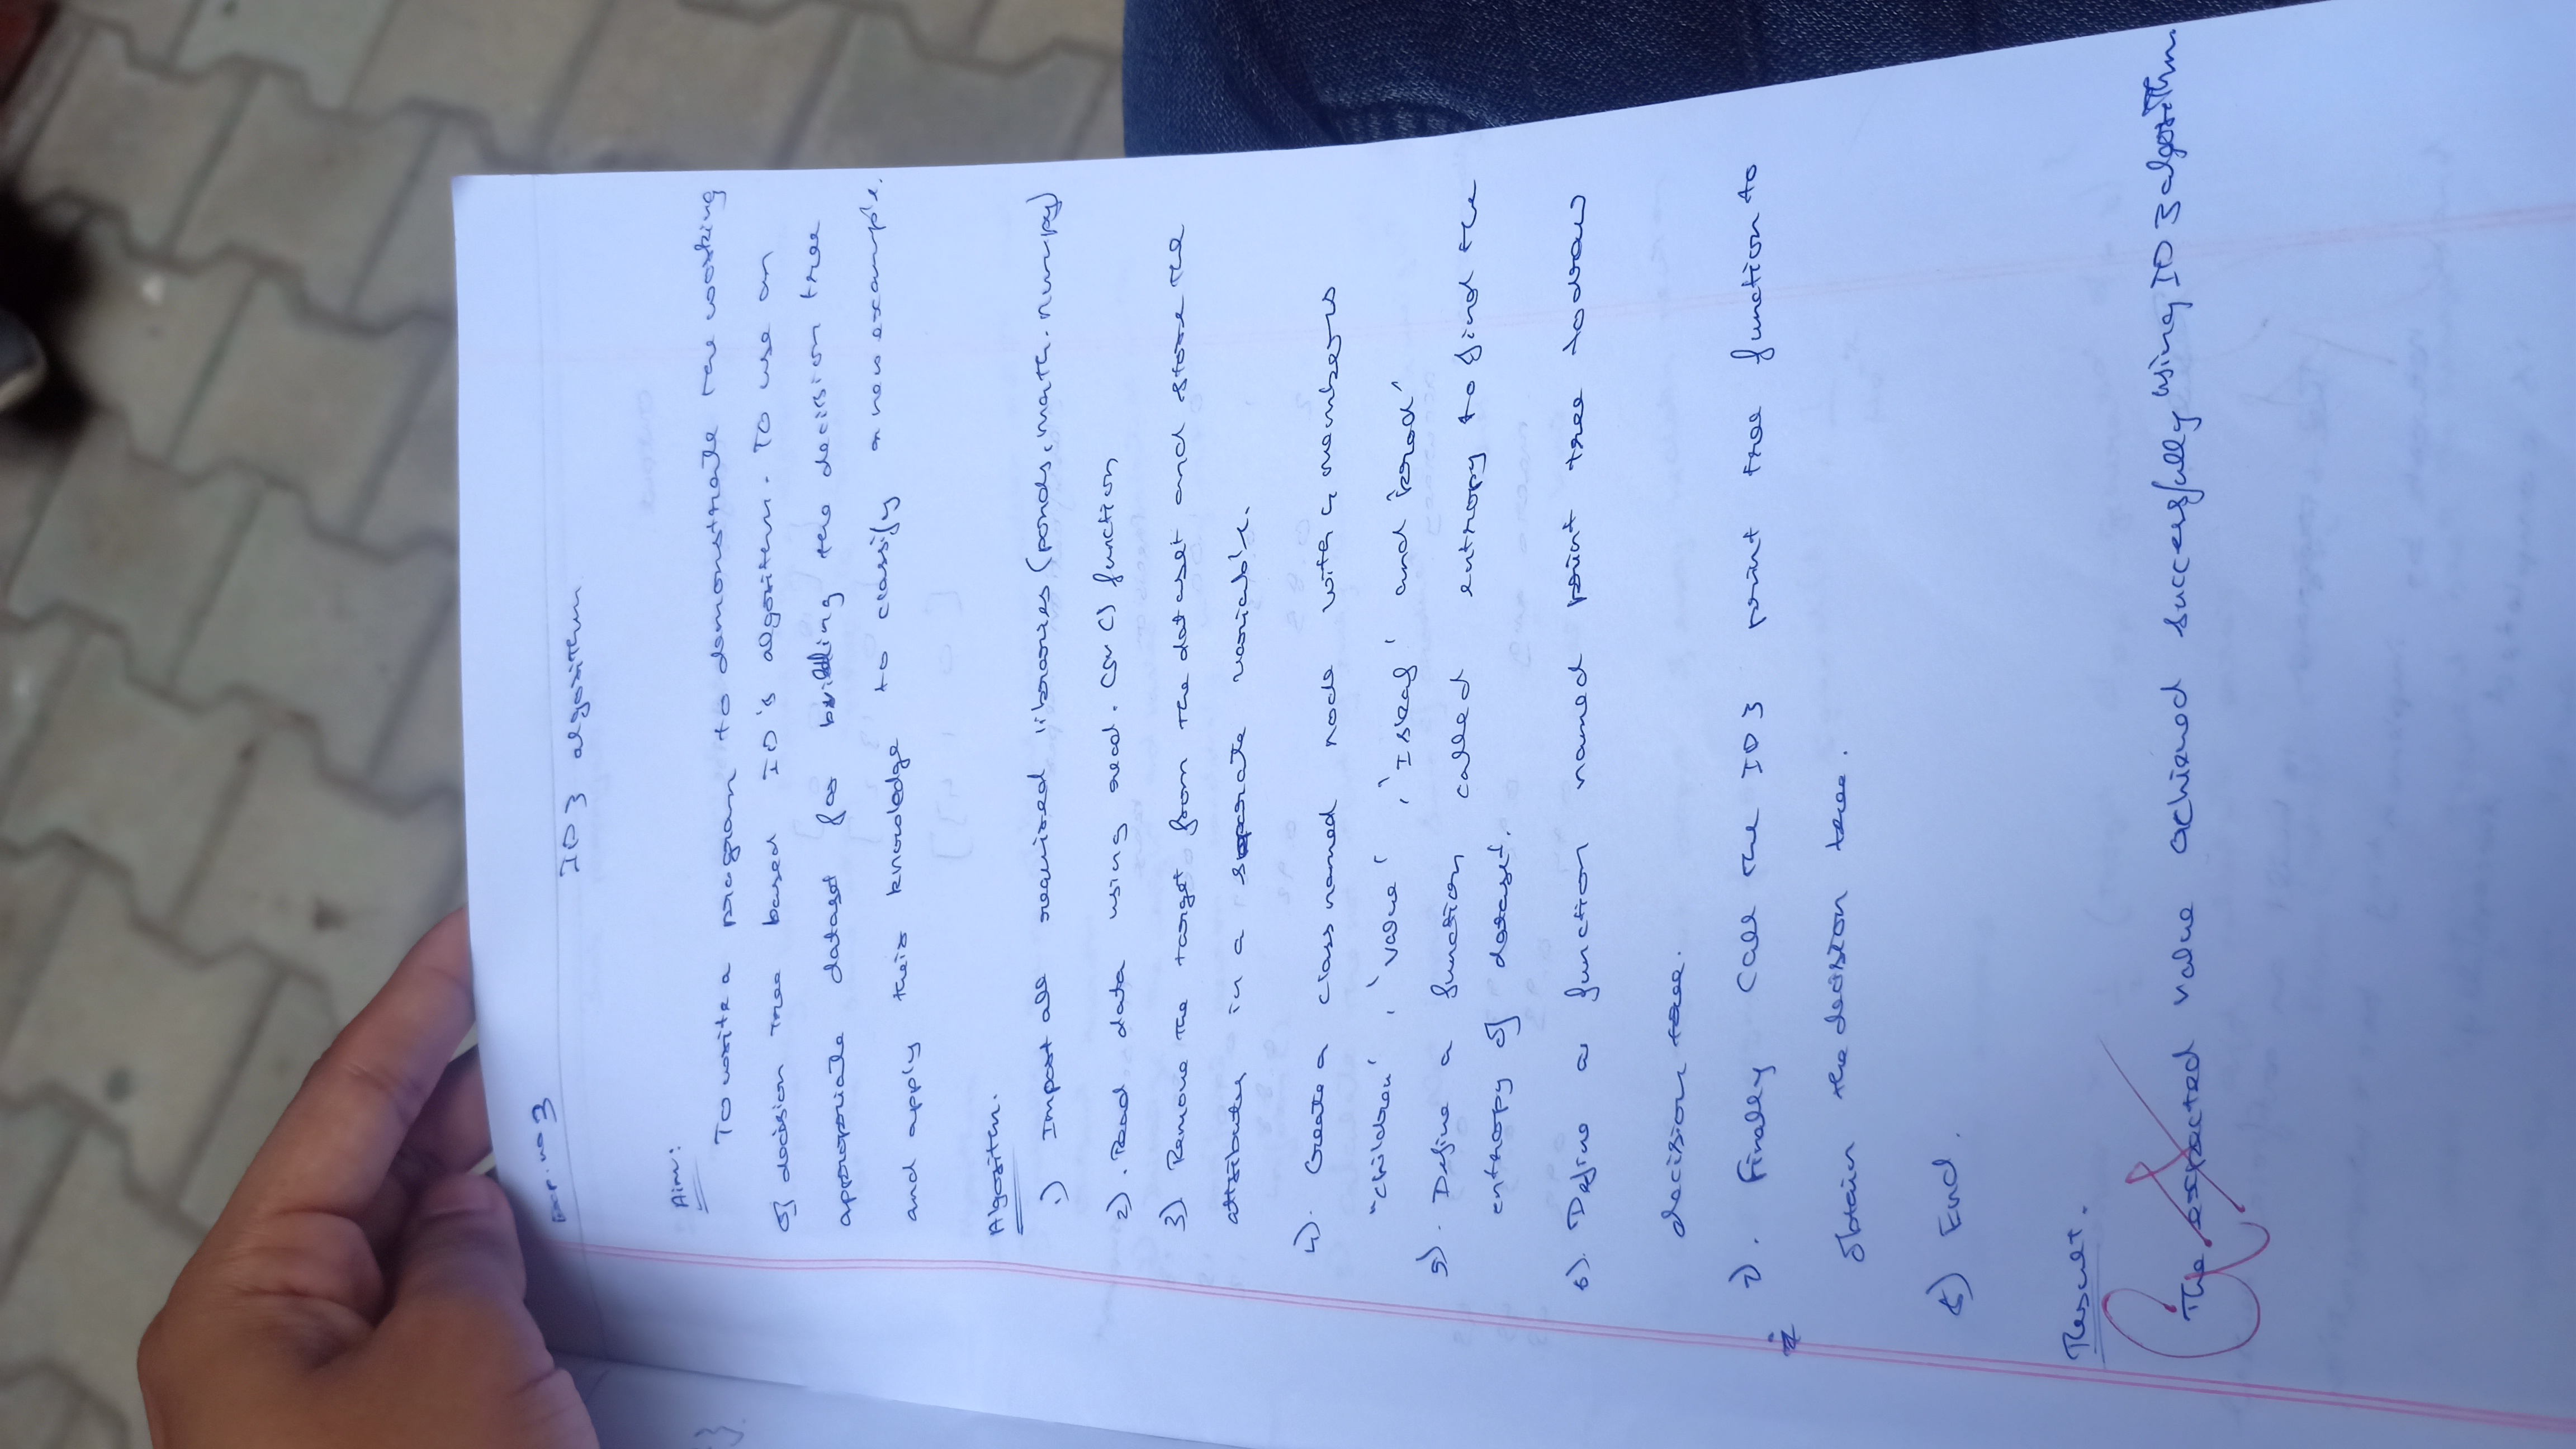 Exp. no 3
ID3 algorithm
Aim:
To write a program to demonstrate the working
of decision tree based ID's algorithm. To use an
appropriate dataset for building the decision tree
and apply their knowledge to classify a new example.
Algorithm.
1) Import all required libraries (pands, math, numpy)
2). Read data using read. CSV () function
3) Remove the target from the data set and store the
attributes in a separate variable.
4). Create a class named node with 4 members
"children', 'value', 'Isleaf' and 'pred'
5). Define a function called entropy to find the
entropy of dataset.
6). Define a function named print tree to draw
decision tree.
7). Finally call the ID3 print tree function to
obtain the decision tree.
8) End.
Result.
The expected value achieved successfully using ID3 algorithm